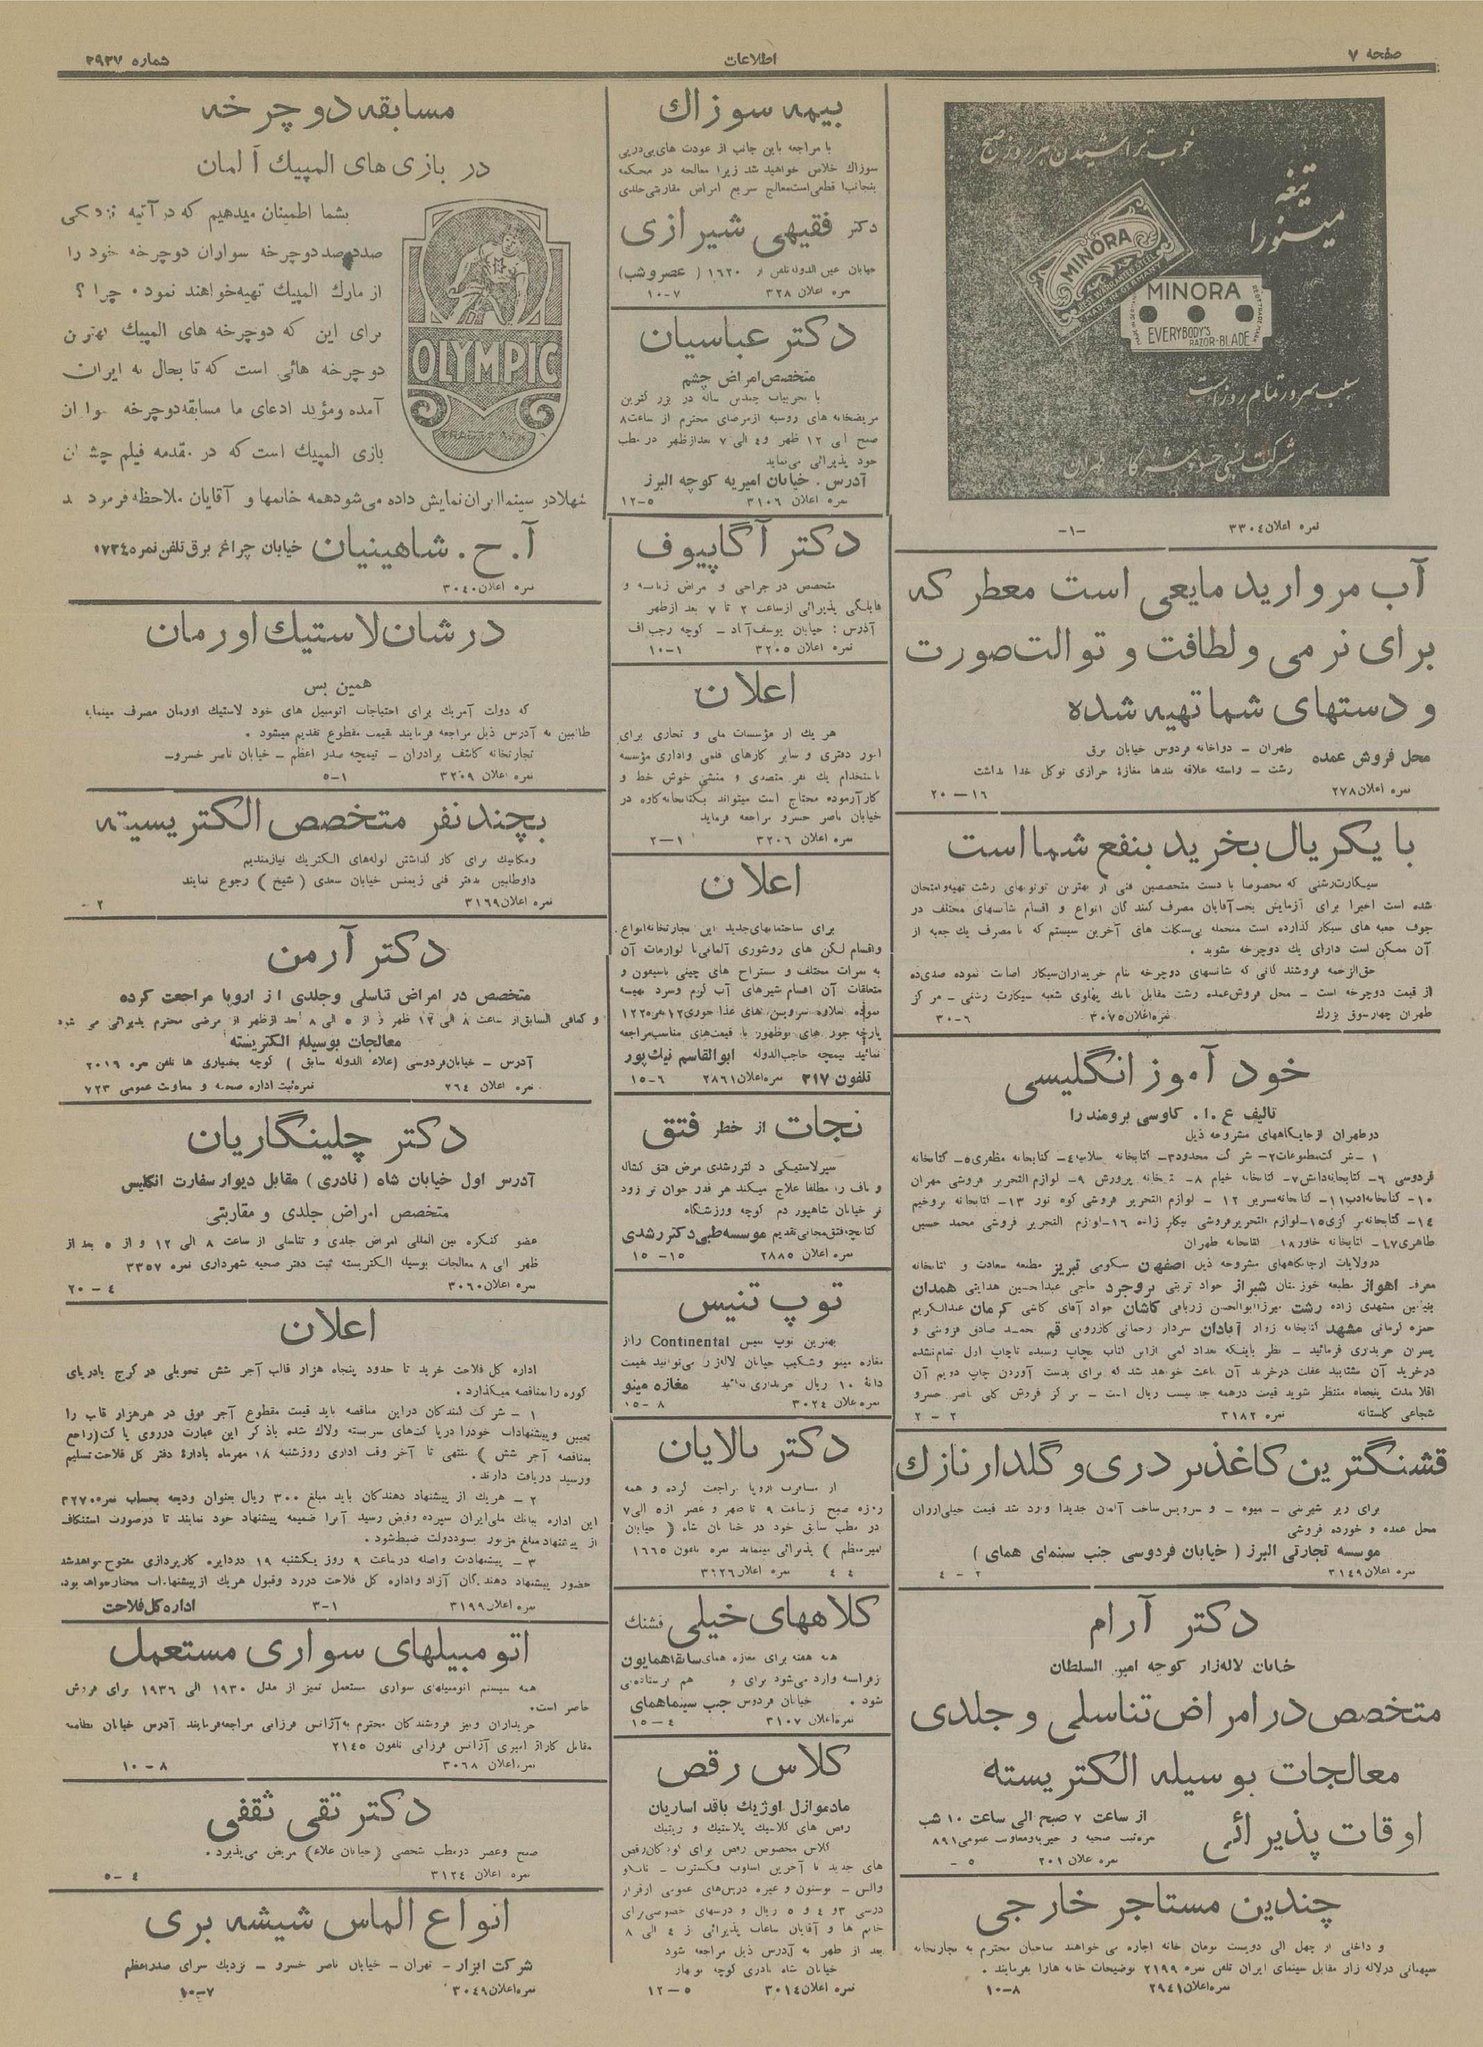 صفحه ۷
اطلاعات
شماره ۲۹۲۷
خوب تراشیدن هر روز صبح
تیغه
مینورا
MINORA
MINORA
EVERYBODY'S
RAZOR-BLADE
سبب سرور تمام روز است
شرکت نسبی
طهران
نمره اعلان ۳۳۰۴
-۱-
آب مروارید مایعی است معطر که
برای نرمی و لطافت و توالت صورت
و دستهای شما تهیه شده
محل فروش عمده
طهران – دواخانه فردوس خیابان برق
رشت – راسته علاقه بندها مغازه خرازی توکل خدا بداشت
نمره اعلان ۲۷۸
۱۶–۲۰
با یکریال بخرید بنفع شما است
سیگارت رشتی که مخصوصا با دست متخصصین فنی از بهترین توتونهای رشت تهیه و امتحان
شده است اخیرا برای آزمایش بخت آقایان مصرف کنندگان انواع و اقسام شانسهای مختلف در
جوف جعبه های سیگار گذارده است منجمله بی‌سکلت های آخرین سیستم که با مصرف یک جعبه از
آن ممکن است دارای یک دوچرخه بشوید .
حق‌الزحمه فروشندگانی که شانسهای دوچرخه بنام خریداران سیگار اصابت نموده صدی ده
از قیمت دوچرخه است – محل فروش عمده رشت مقابل بانک پهلوی شعبه سیگارت رشتی – مرکز
طهران چهارسوق بزرگ
نمره اعلان ۳۰۷۵
۶–۳۰
خود آموز انگلیسی
تالیف ع .ا. کاوسی برومند را
در طهران از جایگاههای مشروحه ذیل
۱ – شرکت مطبوعات ۲– شرکت محدود ۳– کتابخانه سلامیه ۴– کتابخانه مظفری ۵– کتابخانه
فردوسی ۶– کتابخانه دانش ۷– کتابخانه خیام ۸– کتابخانه پرورش ۹– لوازم التحریر فروشی مهران
۱۰– کتابخانه ادب ۱۱– کتابخانه سیروس ۱۲ – لوازم التحریر فروشی کوه نور ۱۳– کتابخانه بروخیم
۱۴– کتابخانه مرکزی ۱۵– لوازم التحریر فروشی بیکار زاده ۱۶– لوازم التحریر فروشی محمد حسین
طاهری ۱۷– کتابخانه خاور ۱۸ کتابخانه طهران
در ولایات از جایگاههای مشروحه ذیل اصفهان سکومی تبریز مطبعه سعادت و کتابخانه
معرفت اهواز مطبعه خوزستان شیراز جواد تربتی بروجرد حاجی عبدالحسین هدایتی همدان
بنیامین مشهدی زاده رشت میرزا ابوالحسن زربافی کاشان جواد آقای کاشی کرمان عبدالکریم
حمزه کرمانی مشهد کتابخانه زوار آبادان سردار رحمانی کازرونی قم محمد صادق فردوسی و
پسران خریداری فرمائید – نظر باینکه تعداد کمی از این کتاب بچاپ رسیده تا چاپ اول تمام نشده
در خرید آن بشتابید غفلت در خرید آن باعث خواهد شد که برای بدست آوردن چاپ دویم آن
اقلا مدت پنجماه منتظر شوید قیمت در همه جا بیست ریال است – مرکز فروش کلی ناصر خسرو
شجاعی گلستانه
نمره ۳۱۸۲
۲ – ۲
قشنگترین کاغذ بردری و گلدار نازک
برای زیر شیرینی – میوه – و سرویس ساخت آلمان جدیدا وارد شد قیمت خیلی ارزان
محل عمده و خورده فروشی
موسسه تجارتی البرز ( خیابان فردوسی جنب سینمای همای )
نمره اعلان ۳۱۴۹
۲ – ۴
دکتر آرام
خیابان لاله‌زار کوچه امین السلطان
متخصص در امراض تناسلی و جلدی
معالجات بوسیله الکتریسته
اوقات پذیرائی
از ساعت ۷ صبح الی ساعت ۱۰ شب
نمره ثبت صحیه و خیریه و معاونت عمومی ۸۹۱
نمره اعلان ۲۰۱
۵ –
چندین مستاجر خارجی
و داخلی از چهل الی دویست تومان خانه اجاره می خواهند صاحبان محترم به تجارتخانه
سیهانی در لاله زار مقابل سینمای ایران تلفن نمره ۲۱۹۹ توضیحات خانه هارا بفرمایند .
نمره اعلان ۲۹۴۱
۸–۱۰
بیمه سوزاک
با مراجعه باین جانب از عودت های بی‌درپی
سوزاک خلاص خواهید شد زیرا معالجه در محکمه
اینجانب قطعی است معالج سریع امراض مقاربتی جلدی
دکتر فقیهی شیرازی
خیابان عین الدوله تلفن ۱۶۲۰ ( عصر و شب)
نمره اعلان ۳۲۸
۷–۱۰
دکتر عباسیان
متخصص امراض چشم
با تجربیات چندین ساله در بزرگترین
مریضخانه های روسیه از مرضای محترم از ساعت ۸
صبح الی ۱۲ ظهر و ۴ الی ۷ بعدازظهر در مطب
خود پذیرائی می‌نماید
آدرس . خیابان امیریه کوچه البرز
نمره اعلان ۳۱۰۶
۵–۱۲
دکتر آگاپیوف
متخصص در جراحی و امراض زنانه و
فامیلی پذیرائی از ساعت ۲ تا ۷ بعد از ظهر
آدرس : خیابان یوسف آباد – کوچه رجب اف
نمره اعلان ۳۲۰۵
۱–۱۰
اعلان
هر یک از مؤسسات ملی و تجاری برای
امور دفتری و سایر کارهای قلمی و اداری مؤسسه
باستخدام یک نفر متصدی و منشی خوش خط و
کارآزموده محتاج است میتواند بکتابخانه کاوه در
خیابان ناصر خسرو مراجعه فرماید
نمره اعلان ۳۲۰۶
۱–۲
اعلان
برای ساختمانهای جدید این تجارتخانه انواع
واقسام لگن های روشوری آلمانی با لوازمات آن
به نمرات مختلف و مستراح های چینی باسیفون و
متعلقات آن اقسام شیرهای آب گرم و سرد تهیه
نموده بعلاوه سرویس های غذا خوری ۱۲ نفره ۱۲۲
پارچه جور های نوظهور با قیمت‌های مناسب مراجعه
نمائید تیمچه حاجب‌الدوله ابوالقاسم نیک‌پور
تلفون ۳۱۷ نمره اعلان ۲۸۶۱
۶–۱۵
نجات از خطر فتق
سپر لاستیکی دکتر رشدی مرض فتق کشاله
و ناف را مطلقا علاج میکند هر قدر جوان تر زود
تر خیابان شاهپور دم کوچه ورزشگاه
کتابچه فتق مجانی تقدیم موسسه طبی دکتر رشدی
نمره اعلان ۲۸۸۵
۱۵– ۱۵
توپ تنیس
بهترین توپ تنیس Continental را از
مغازه مینو و شکیب خیابان لاله‌زار می‌توانید بقیمت
دانه ۱۰ ریال خریداری نمائید
مغازه مینو
نمره اعلان ۳۰۲۴
۸ –۱۵
دکتر بالایان
از مسافرت اروپا مراجعت کرده و همه
روزه صبح از ساعت ۹ تا ظهر و عصر از ۵ الی ۷
در مطب سابق خود در خیابان شاه ( خیابان
امیر معظم ) پذیرائی مینماید نمره تلفون ۱۶۶۵
نمره اعلان ۳۱۲۶
۴ ۴
کلاههای خیلی قشنگ
همه هفته برای مغازه همای سابقا همایون
از فرانسه وارد می‌شود برای
شود . خیابان فردوس جنب سینما همای
نمره اعلان ۳۱۰۷
۴–۱۵
کلاس رقص
مادموازل اوژیک باقد اساریان
رقص های کلاسیک پلاستیک و ریتمیک
کلاس مخصوص رقص برای کودکان رقص
های جدید با آخرین اسلوب فکسترت – تانگو
والس – بوستون و غیره درس‌های عمومی از قرار
درسی ۳ و ۴ و ۵ ریال و درسهای خصوصی برای
خانم ها و آقایان ساعات پذیرائی از ۴ الی ۸
بعد از ظهر به آدرس ذیل مراجعه شود
خیابان شاه نادری کوچه نوبهار
نمره اعلان ۳۰۱۴
۵–۱۲
مسابقه دوچرخه
در بازی های المپیک آلمان
بشما اطمینان میدهیم که در آتیه نزدیکی
صددرصد دوچرخه سواران دوچرخه خود را
از مارک المپیک تهیه خواهند نمود . چرا ؟
برای این که دوچرخه های المپیک بهترین
دوچرخه هائی است که تا بحال به ایران
آمده و مؤید ادعای ما مسابقه دوچرخه سواران
بازی المپیک است که در مقدمه فیلم چشمان
شهلا در سینما ایران نمایش داده می‌شود همه خانمها و آقایان ملاحظه فرمودند
OLYMPIC
TRADE MARK
آ. ح. شاهینیان خیابان چراغ برق تلفن نمره ۱۷۳۴
نمره اعلان ۳۰۴۰
در شان لاستیک اورمان
همین بس
که دولت آمریک برای احتیاجات اتومبیل های خود لاستیک اورمان مصرف مینماید
طالبین به آدرس ذیل مراجعه فرمایند بقیمت مقطوع تقدیم میشود .
تجارتخانه کاشف برادران – تیمچه صدر اعظم – خیابان ناصر خسرو–
نمره اعلان ۳۲۰۹
۱–۵
بچند نفر متخصص الکتریسیته
ومکانیک برای کار گذاشتن لوله‌های الکتریک نیازمندیم
داوطلبین بدفتر فنی زیمنس خیابان سعدی ( شیخ ) رجوع نمایند
نمره اعلان ۳۱۶۹
۲ –
دکتر آرمن
متخصص در امراض تناسلی و جلدی از اروپا مراجعت کرده
و کمافی السابق از ساعت ۸ الی ۱۲ ظهر و از ۵ الی ۸ بعد ازظهر از مرضی محترم پذیرائی می شود
معالجات بوسیله الکتریسته
آدرس – خیابان فردوسی (علاء الدوله سابق ) کوچه بختیاری ها تلفن نمره ۲۰۱۶
نمره اعلان ۲۶۴
نمره ثبت اداره صحیه و معاونت عمومی ۷۲۳
دکتر چلینگاریان
آدرس اول خیابان شاه (نادری ) مقابل دیوار سفارت انگلیس
متخصص امراض جلدی و مقاربتی
عضو کنگره بین المللی امراض جلدی و تناسلی از ساعت ۸ الی ۱۲ و از ۵ بعد از
ظهر الی ۸ معالجات بوسیله الکتریسته ثبت دفتر صحیه شهرداری نمره ۳۳۵۷
نمره اعلان ۳۰۶۰
۴ – ۲۰
اعلان
اداره کل فلاحت خرید تا حدود پنجاه هزار قالب آجر شش تحویلی در کرج یادر پای
کوره را بمناقصه میگذارد .
۱ – شرکت کنندگان در این مناقصه باید قیمت مقطوع آجر فوق در هر هزار قالب را
تعیین و پیشنهادات خود را در پاکت‌های سربسته ولاک شده باذکر این عبارت در روی پاکت (راجع
بمناقصه آجر شش ) منتهی تا آخر وقت اداری روز شنبه ۱۸ مهرماه بادارهٔ دفتر کل فلاحت تسلیم
ورسید دریافت دارند .
۲ – هریک از پیشنهاد دهندگان باید مبلغ ۳۰۰ ریال بعنوان ودیعه بحساب نمره ۳۲۷۰
این اداره ببانک ملی ایران سپرده و قبض رسید آنرا ضمیمه پیشنهاد خود نمایند تا در صورت استنکاف
از پیشنهاد مبلغ مزبور بسود دولت ضبط شود .
۳ – پیشنهادات واصله در ساعت ۹ روز یکشنبه ۱۹ در دایره کارپردازی مفتوح خواهد شد
حضور پیشنهاد دهندگان آزاد و اداره کل فلاحت در رد و قبول هر یک از پیشنهادات مختار خواهد بود.
نمره اعلان ۳۱۹۹
۱–۳
اداره کل فلاحت
اتومبیلهای سواری مستعمل
همه سیستم اتومبیلهای سواری مستعمل تمیز از مدل ۱۹۳۰ الی ۱۹۳۶ برای فروش
حاضر است.
خریداران و نیز فروشندگان محترم به آژانس فرزامی مراجعه فرمایند آدرس خیابان نظامیه
مقابل گاراژ امیری آژانس فرزامی تلفون ۲۱۴۵
نمره اعلان ۳۰۶۸
۸ – ۱۰
دکتر تقی ثقفی
صبح وعصر در مطب شخصی (خیابان علاء) مریض می‌پذیرد .
نمره اعلان ۳۱۲۴
۴ –۵
انواع الماس شیشه بری
شرکت ابزار – تهران – خیابان ناصر خسرو – نزدیک سرای صدراعظم
نمره اعلان ۳۰۴۹
۷–۱۰